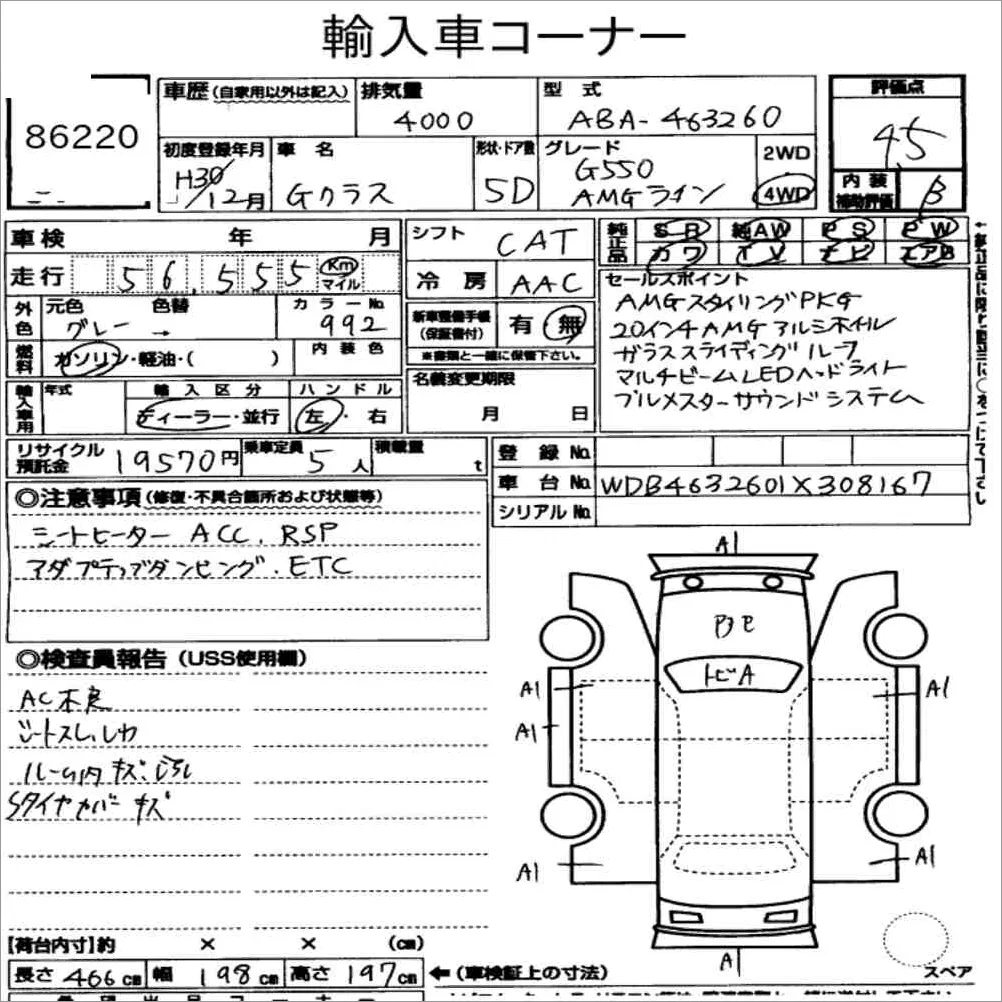 輸入車コーナー
86220
車歴 (自家用以外は記入) 排気量 型式 評価点
4000 ABA-463260 45
初度登録年月 車名 形状・ドア数 グレード 2WD 内装補助評価
H30/12月 Gクラス 5D G550 AMGライン 4WD B
車検 年 月 シフト CAT 純正品 SR 純AW PS PW
走行 56,555 Km マイル 冷房 AAC カワ TV ナビ エアB
外色 元色 色替 カラーNo. 新車整備手帳 (保証書付) 有 無 セールスポイント
グレー → 992 ※書類と一緒に保管下さい。
AMGスタイリングPKG
20インチAMGアルミホイル
燃料 ガソリン・軽油・( ) 内装色
ガラススライディングルーフ
マルチビームLEDヘッドライト
ブルメスターサウンドシステム
輸入車用 年式 輸入区分 ハンドル 名義変更期限
ディーラー・並行 左・右 月 日
リサイクル預託金 19570円 乗車定員 5人 積載量 t 登録No.
車台No. WDB4632601X308167
シリアルNo.
◎注意事項 (修復・不具合箇所および状態等)
シートヒーター ACC. RSP
アダプティブダンピング. ETC
◎検査員報告 (USS使用欄)
AC不良
シートスレ、しわ
ルーム内キズ、汚れ
Sタイヤカバーキズ
A1
トビA
A1 A1
A1
A1 A1
A1
【荷台内寸】約 × × (cm)
長さ 466cm 幅 198cm 高さ 197cm ←(車検証上の寸法) スペア